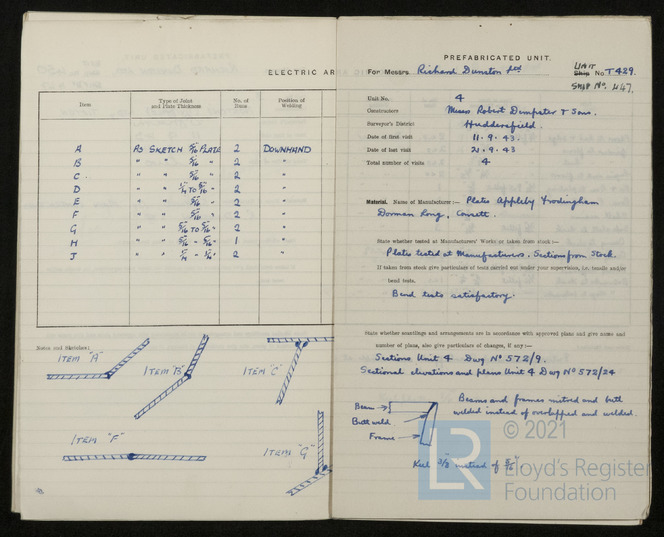 ELECTRIC AR
Item Type of Joint and Plate Thickness No. of Runs Position of Welding
A AS SKETCH 5/16" PLATE 2 DOWNHAND
B " " 5/16" " 2 "
C " " 5/16" " 2 "
D " " 1/4" TO 5/16" " 2 "
E " " 5/16" 2 "
F " " 5/16" 2 "
G " " 5/16" TO 5/16" 2 "
H " " 5/16" " 5/16" 1 "
J " " 1/4" " 1/4" 2 "
Notes and Sketches:
ITEM "A"
ITEM "B"
ITEM "C"
ITEM "F"
ITEMS "G"
PREFABRICATED UNIT.
For Messrs Richard Dunston Ltd UNIT Ship No T429.
SHIP No. 447.
Unit No. 4
Constructors Messrs Robert Dempster & Sons.
Surveyor's District Huddersfield.
Date of first visit 11.9.43.
Date of last visit 21.9.43
Total number of visits 4
Material. Name of Manufacturer :— Plates Appleby Frodingham
Dorman Long, Consett.
State whether tested at Manufacturers' Works or taken from stock :—
Plates tested at Manufacturers. Sections from Stock.
If taken from stock give particulars of tests carried out under your supervision, i.e. tensile and/or
bend tests.
Bend tests satisfactory.
State whether scantlings and arrangements are in accordance with approved plans and give name and
number of plans, also give particulars of changes, if any :—
Sections Unit 4 Dwg No 572/9.
Sectional elevations and plans Unit 4 Dwg No 572/24
Beam
Butt weld
Frame
Beams and frames mitred and butt
welded instead of overlapped and welded.
Keel 3/8" instead of 5/8".
© 2021
LR
Lloyd's Register
Foundation